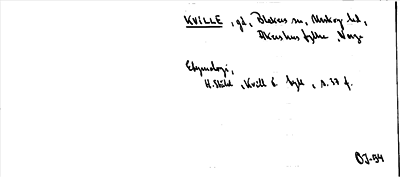 KVILLE, gd, Blakers sn, Urskog hd,
Akershus fylke, Norge
Etymologi,
H. Ståhl, Kvill o. tyll, s. 37 f.
OJ-54